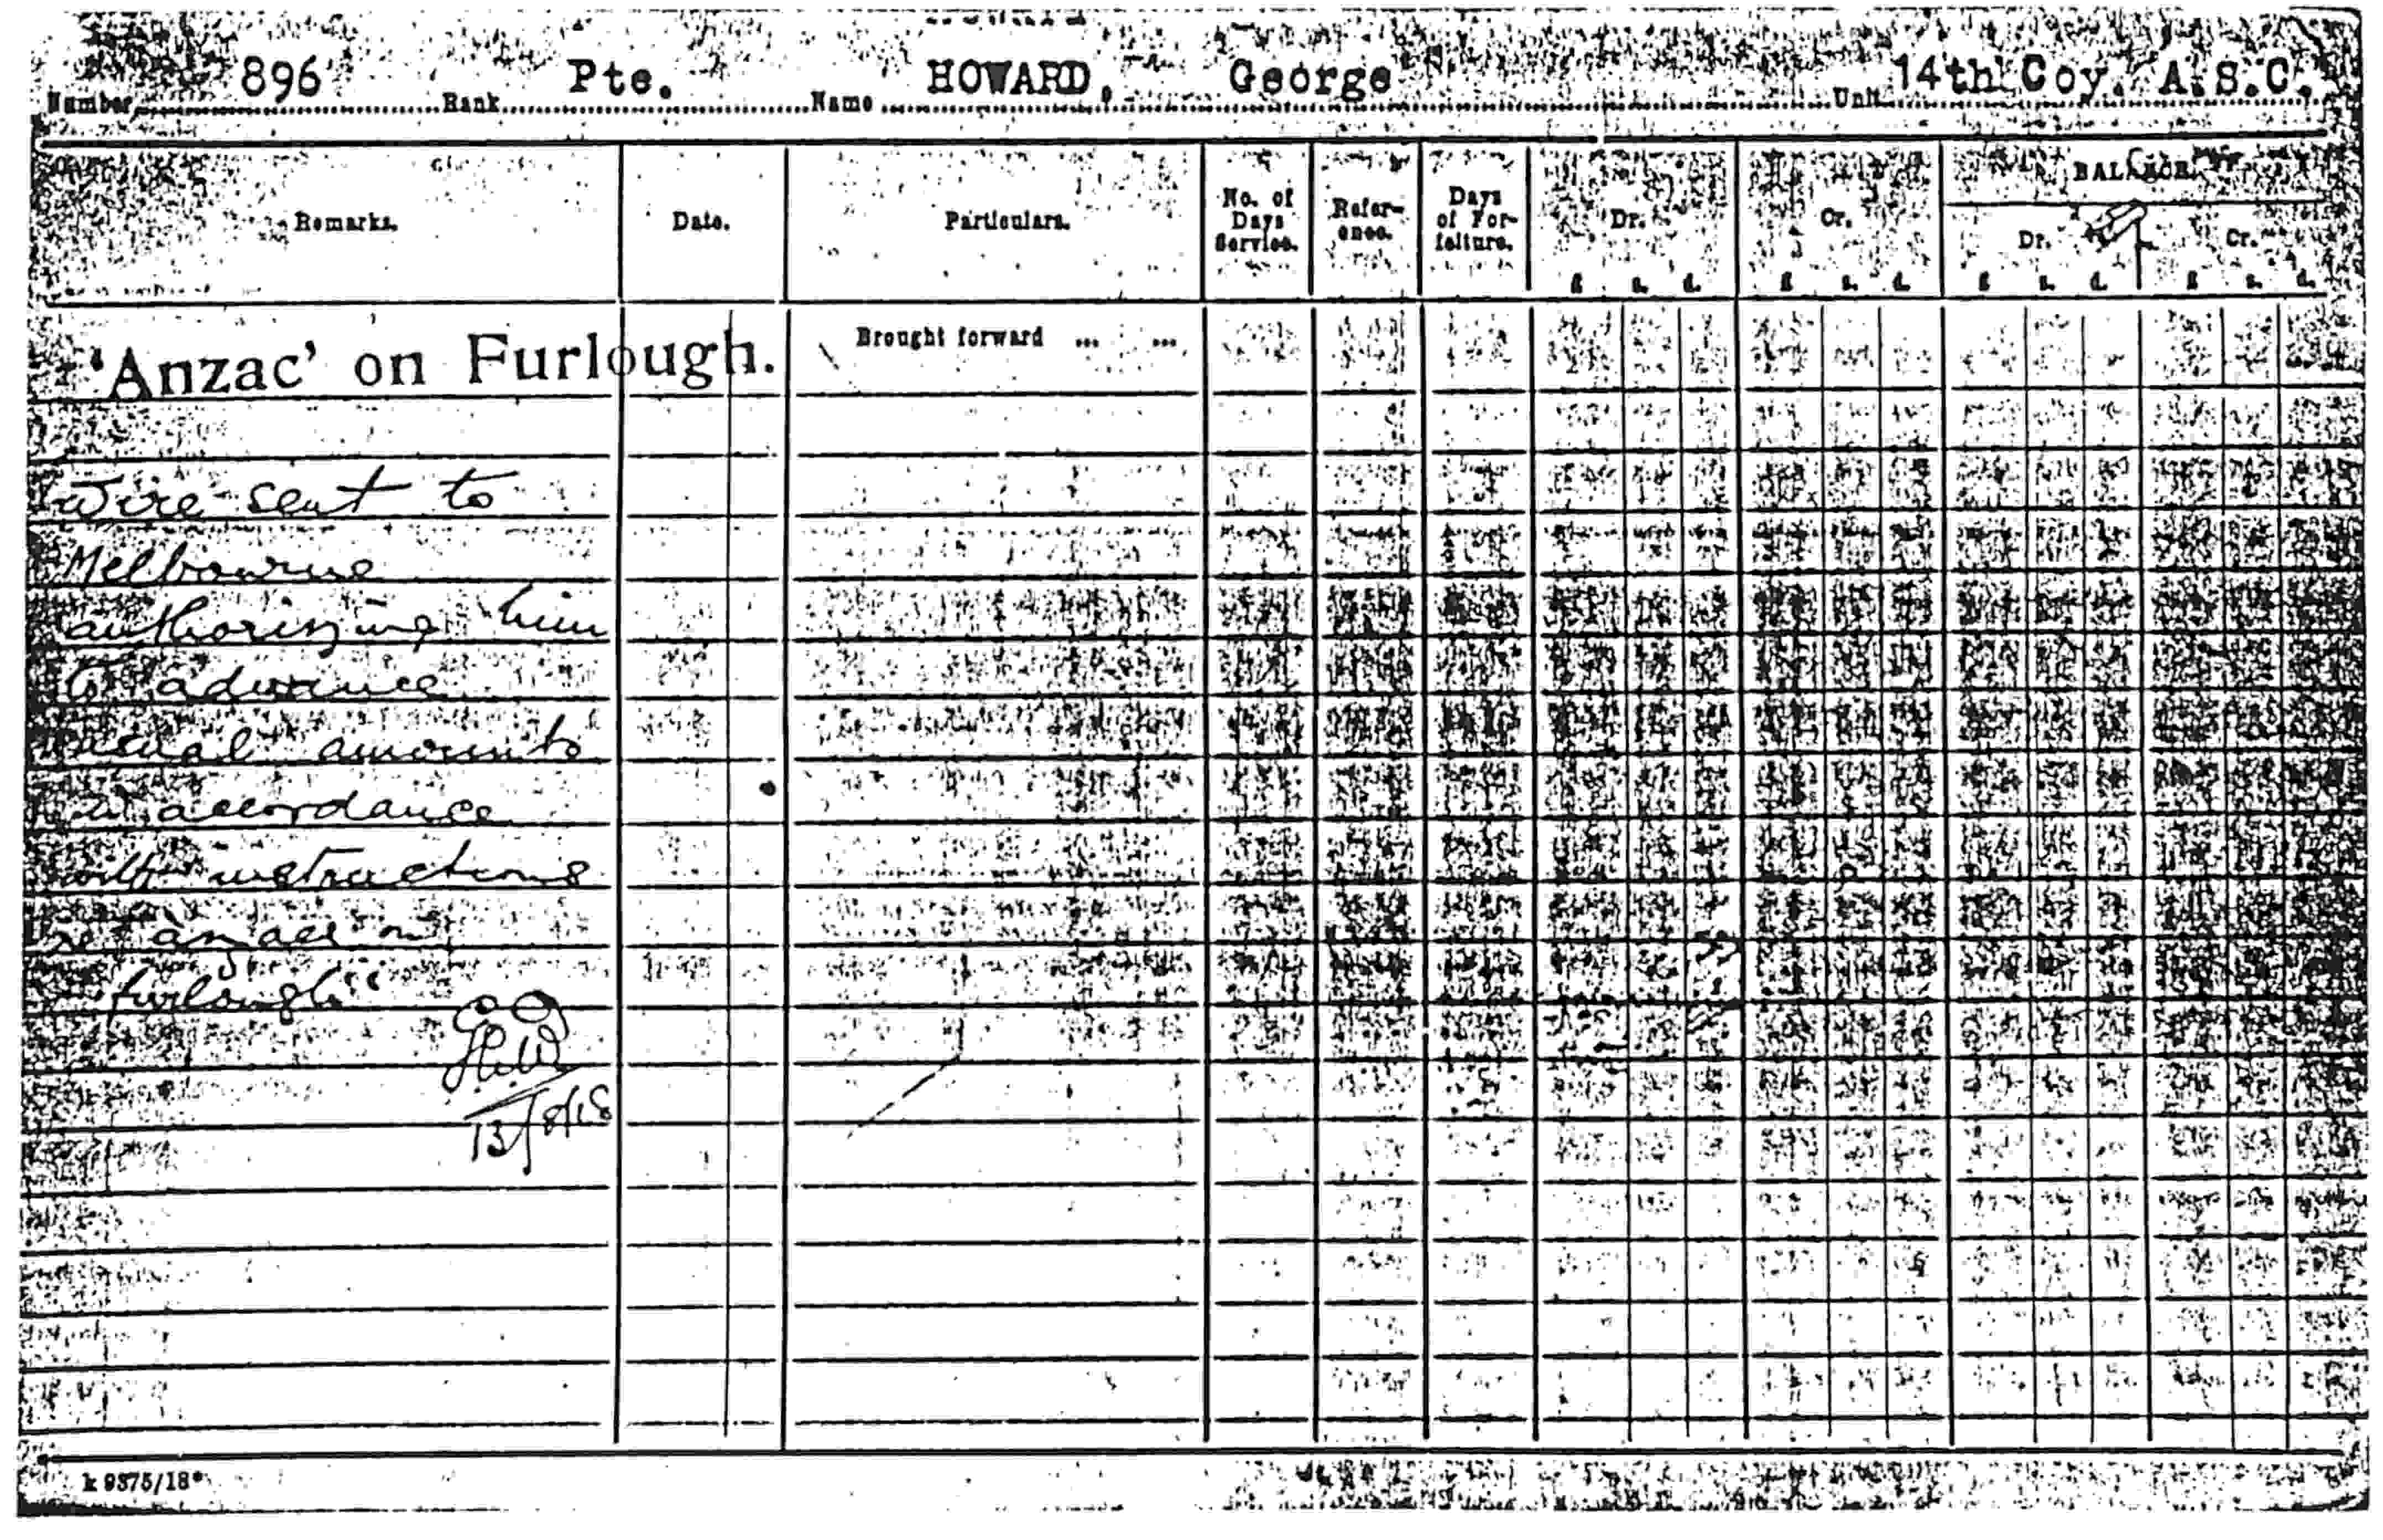 Number 896 Rank Pte. Name HOWARD, George Unit 14th Coy. A.S.C.
Remarks. Date. Particulars. No. of Days Service. Refer-ence. Days of For-feiture. Dr. Cr. BALANCE.
Dr. Cr.
£ s. d. £ s. d. £ s. d. £ s. d.
'Anzac' on Furlough. Brought forward ... ...
Wire sent to
Melbourne
authorizing him
to advance
usual amounts
in accordance
with instructions
re anzac on
furlough"
H.W
13/8/18
k 9375/18*